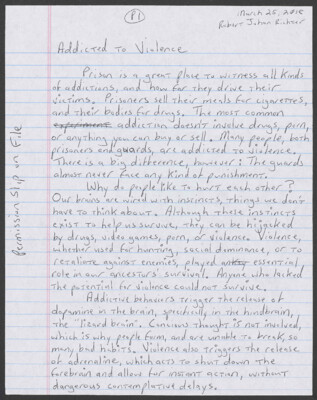 P1
March 26, 2015
Robert Johan
Addicted to Violence
Prison is a great place to witness all kinds
of addictions, and how far they drive their
victims. Prisoners sell their meals for cigarettes,
and their bodies for drugs. The most common
experiment addiction doesn't involve drugs, porn,
or anything you can buy or sell. Many people, both
prisoners and guards, are addicted to violence.
There is a big difference, however: The guards
almost never face any kind of punishment.
Why do people like to hurt each other?
Our brains are wired with instincts, things we don't
have to think about. Although these instincts
exist to help us survive, they can be hijacked
by drugs, video games, porn, or violence. Violence,
whether used for hunting, social dominance, or to
retaliate against enemies, played essential
role in our ancestors' survival. Anyone who lacked
the potential for violence could not survive.
Addictive behaviors trigger the release of
dopamine in the brain, specificlly, in the hindbrain,
the "lizard brain". Conscious thought is not involved,
which is why people form, and are unable to break, so
many bad habits. Violence also triggers the release
of adrenaline, which acts to shut down the
forebrain and allow for instant action, without
dangerous contemplative delays.
Permission Slip on File